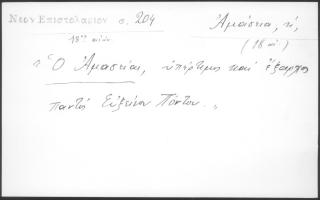 Νεον Επιστολαριον σ. 204
Ἀμάσεια, ἡ,
18ος αἰών.
(18 αἰ)
"Ὁ Ἀμασείας, ὑπέρτιμος καὶ ἔξαρχος
παντὸς Εὐξείνου Πόντου.„